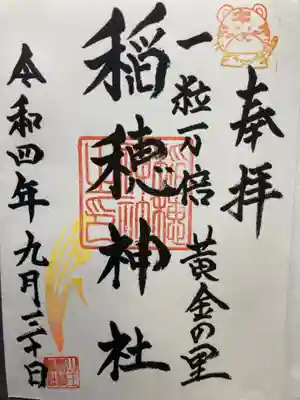 奉拝
一粒万倍 黄金の里
稲穂神社
令和四年九月二十日